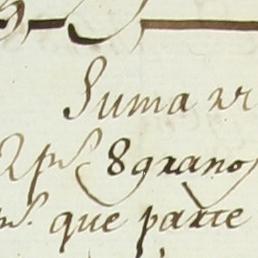 Suma
2 p.s 8 granos
p.s. que parte